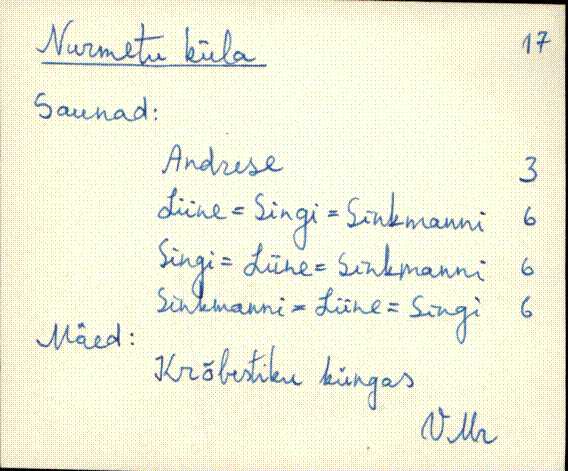 Nurmetu küla 17
Saunad:
Andrese 3
Liine = Singi = Sinkmanni 6
Singi = Liine = Sinkmanni 6
Sinkmanni = Liine = Singi 6
Mäed:
Krõbestiku küngas
VMr